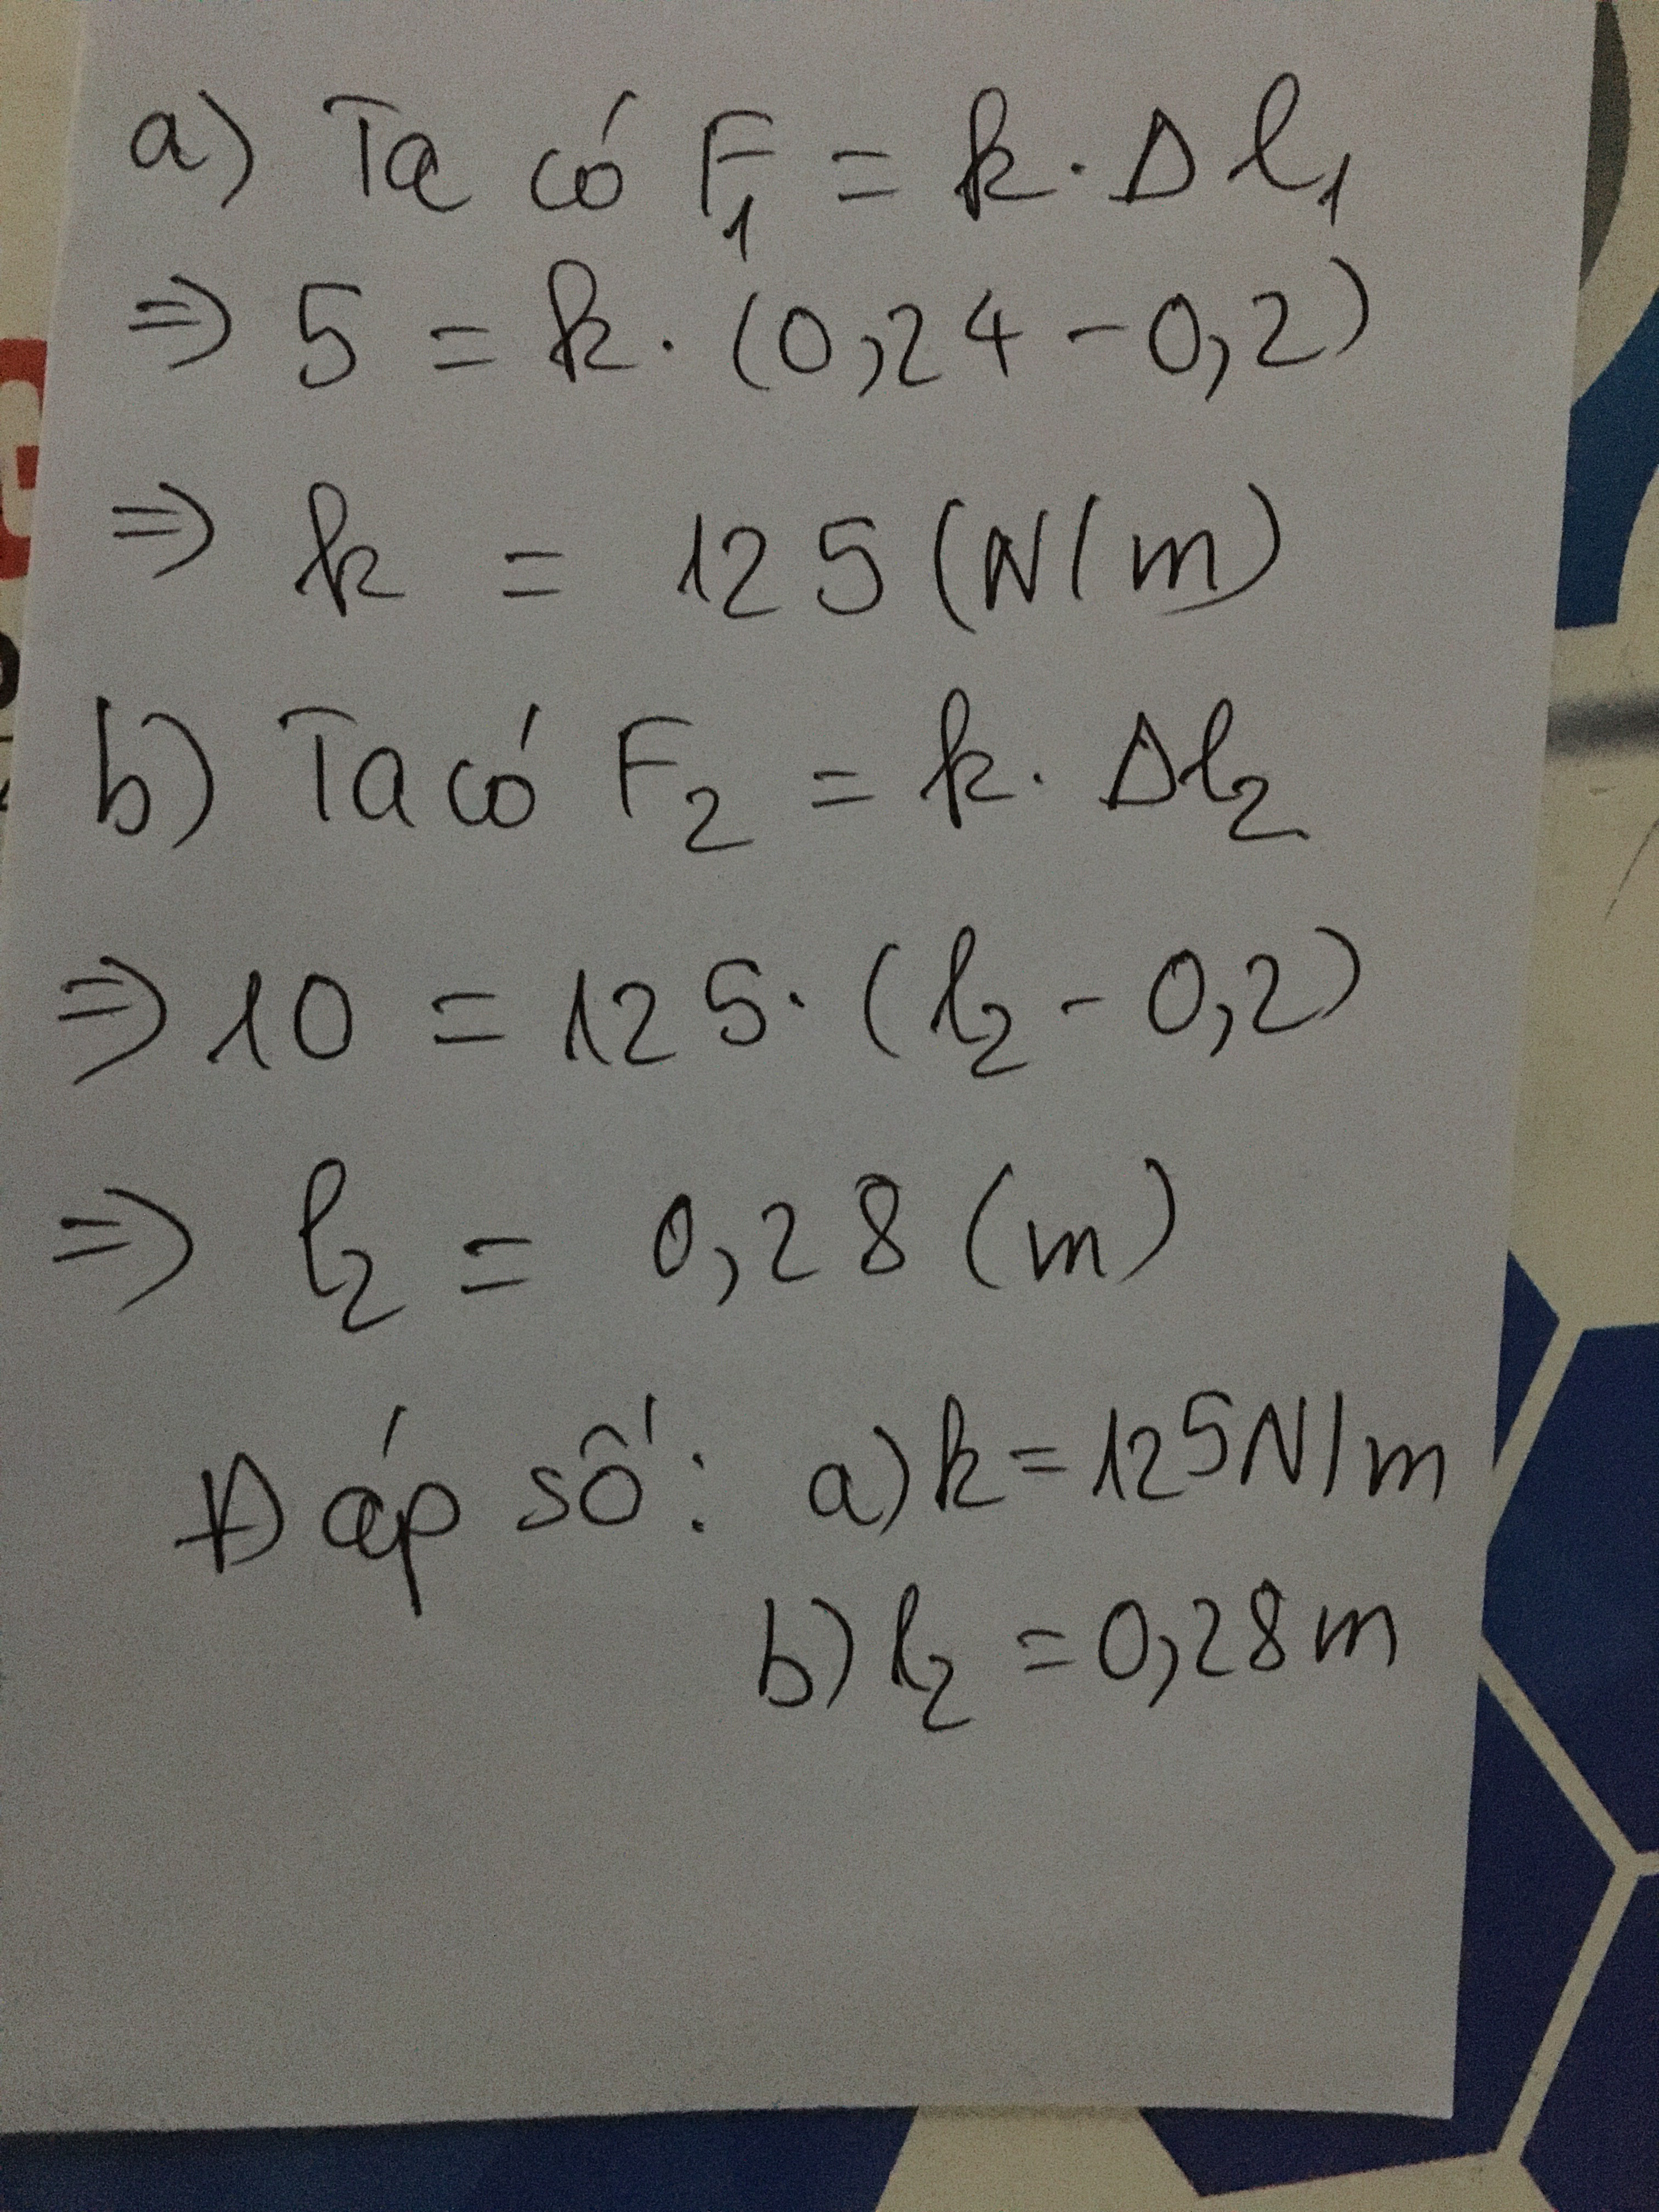 a) Ta có F₁ = k. Δl₁
=> 5 = k. (0,24 - 0,2)
=> k = 125 (N/m)
b) Ta có F₂ = k. Δl₂
=> 10 = 125. (l₂ - 0,2)
=> l₂ = 0,28 (m)
Đáp số: a) k = 125N/m
b) l₂ = 0,28m